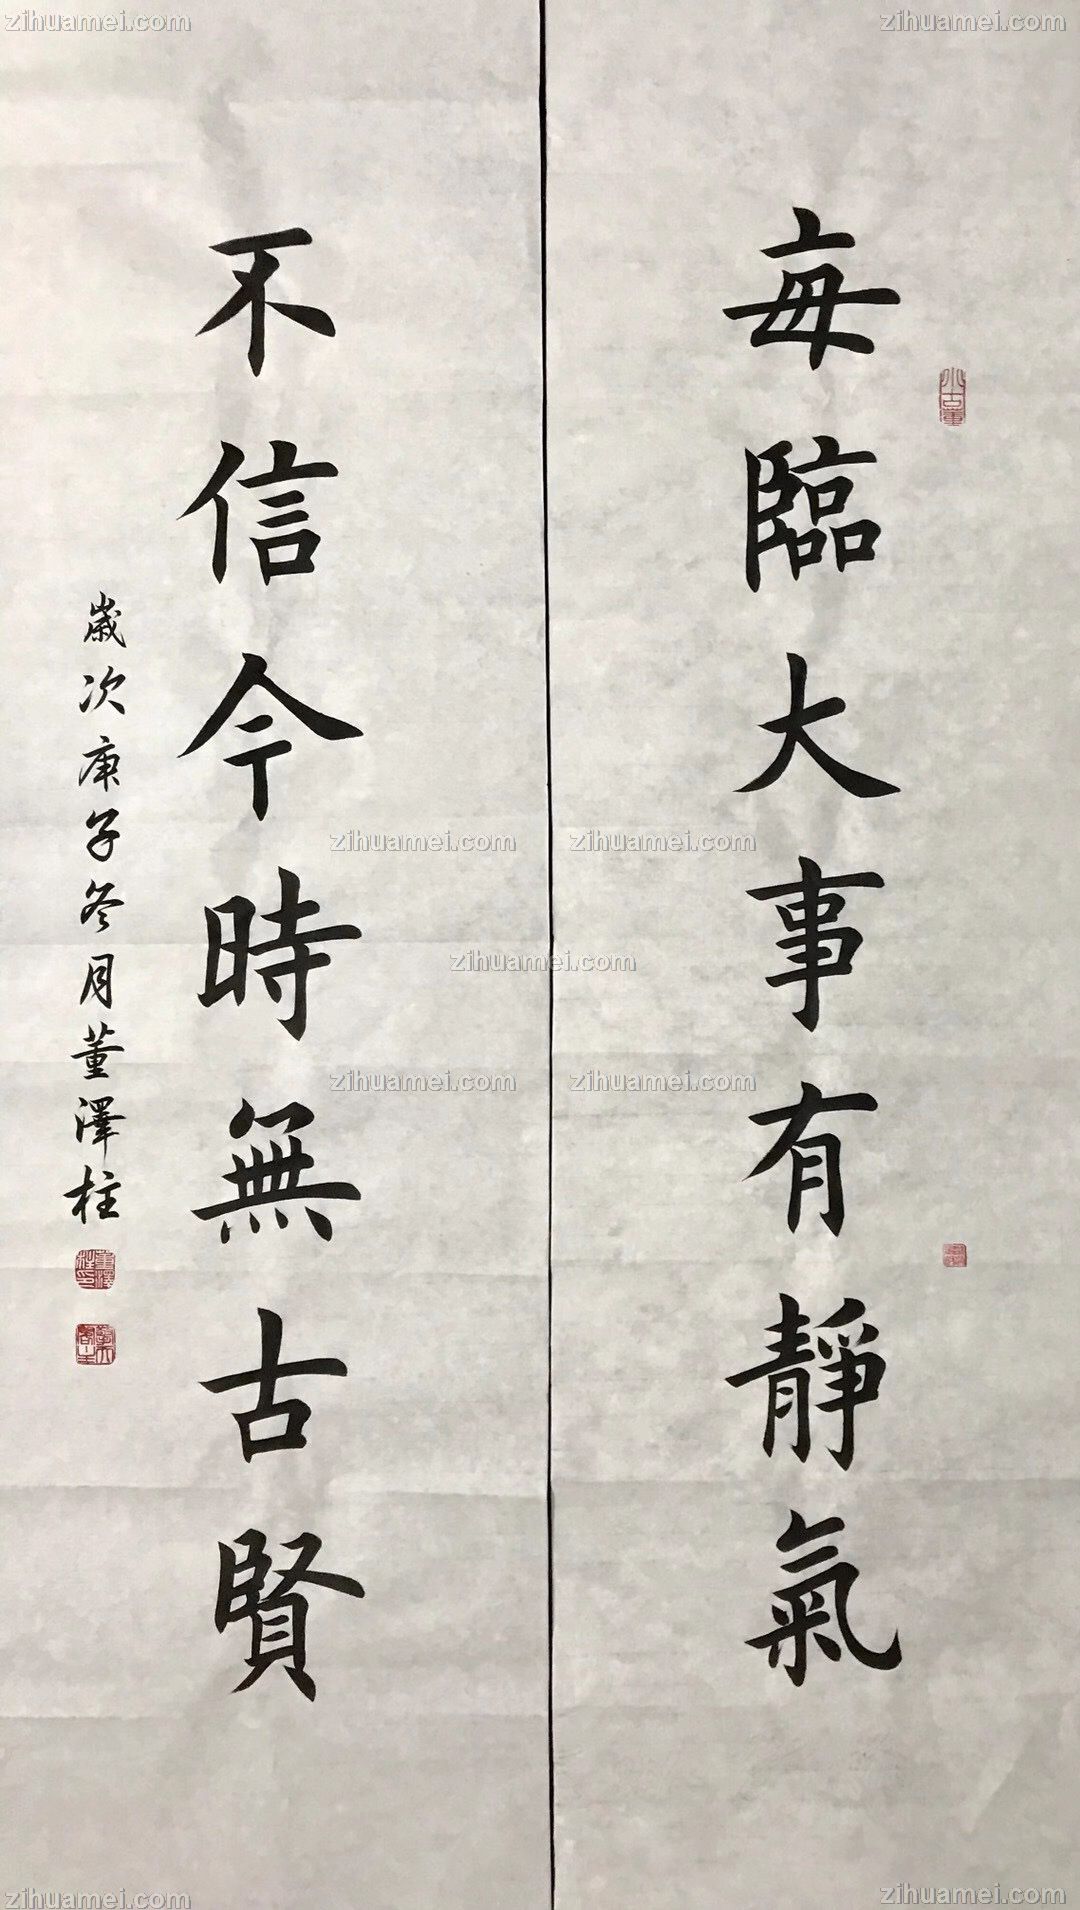 每臨大事有靜氣
不信今時無古賢
歲次庚子冬月董澤柱
zihuamei.com
zihuamei.com
zihuamei.com
zihuamei.com
zihuamei.com
zihuamei.com
zihuamei.com
zihuamei.com
zihuamei.com